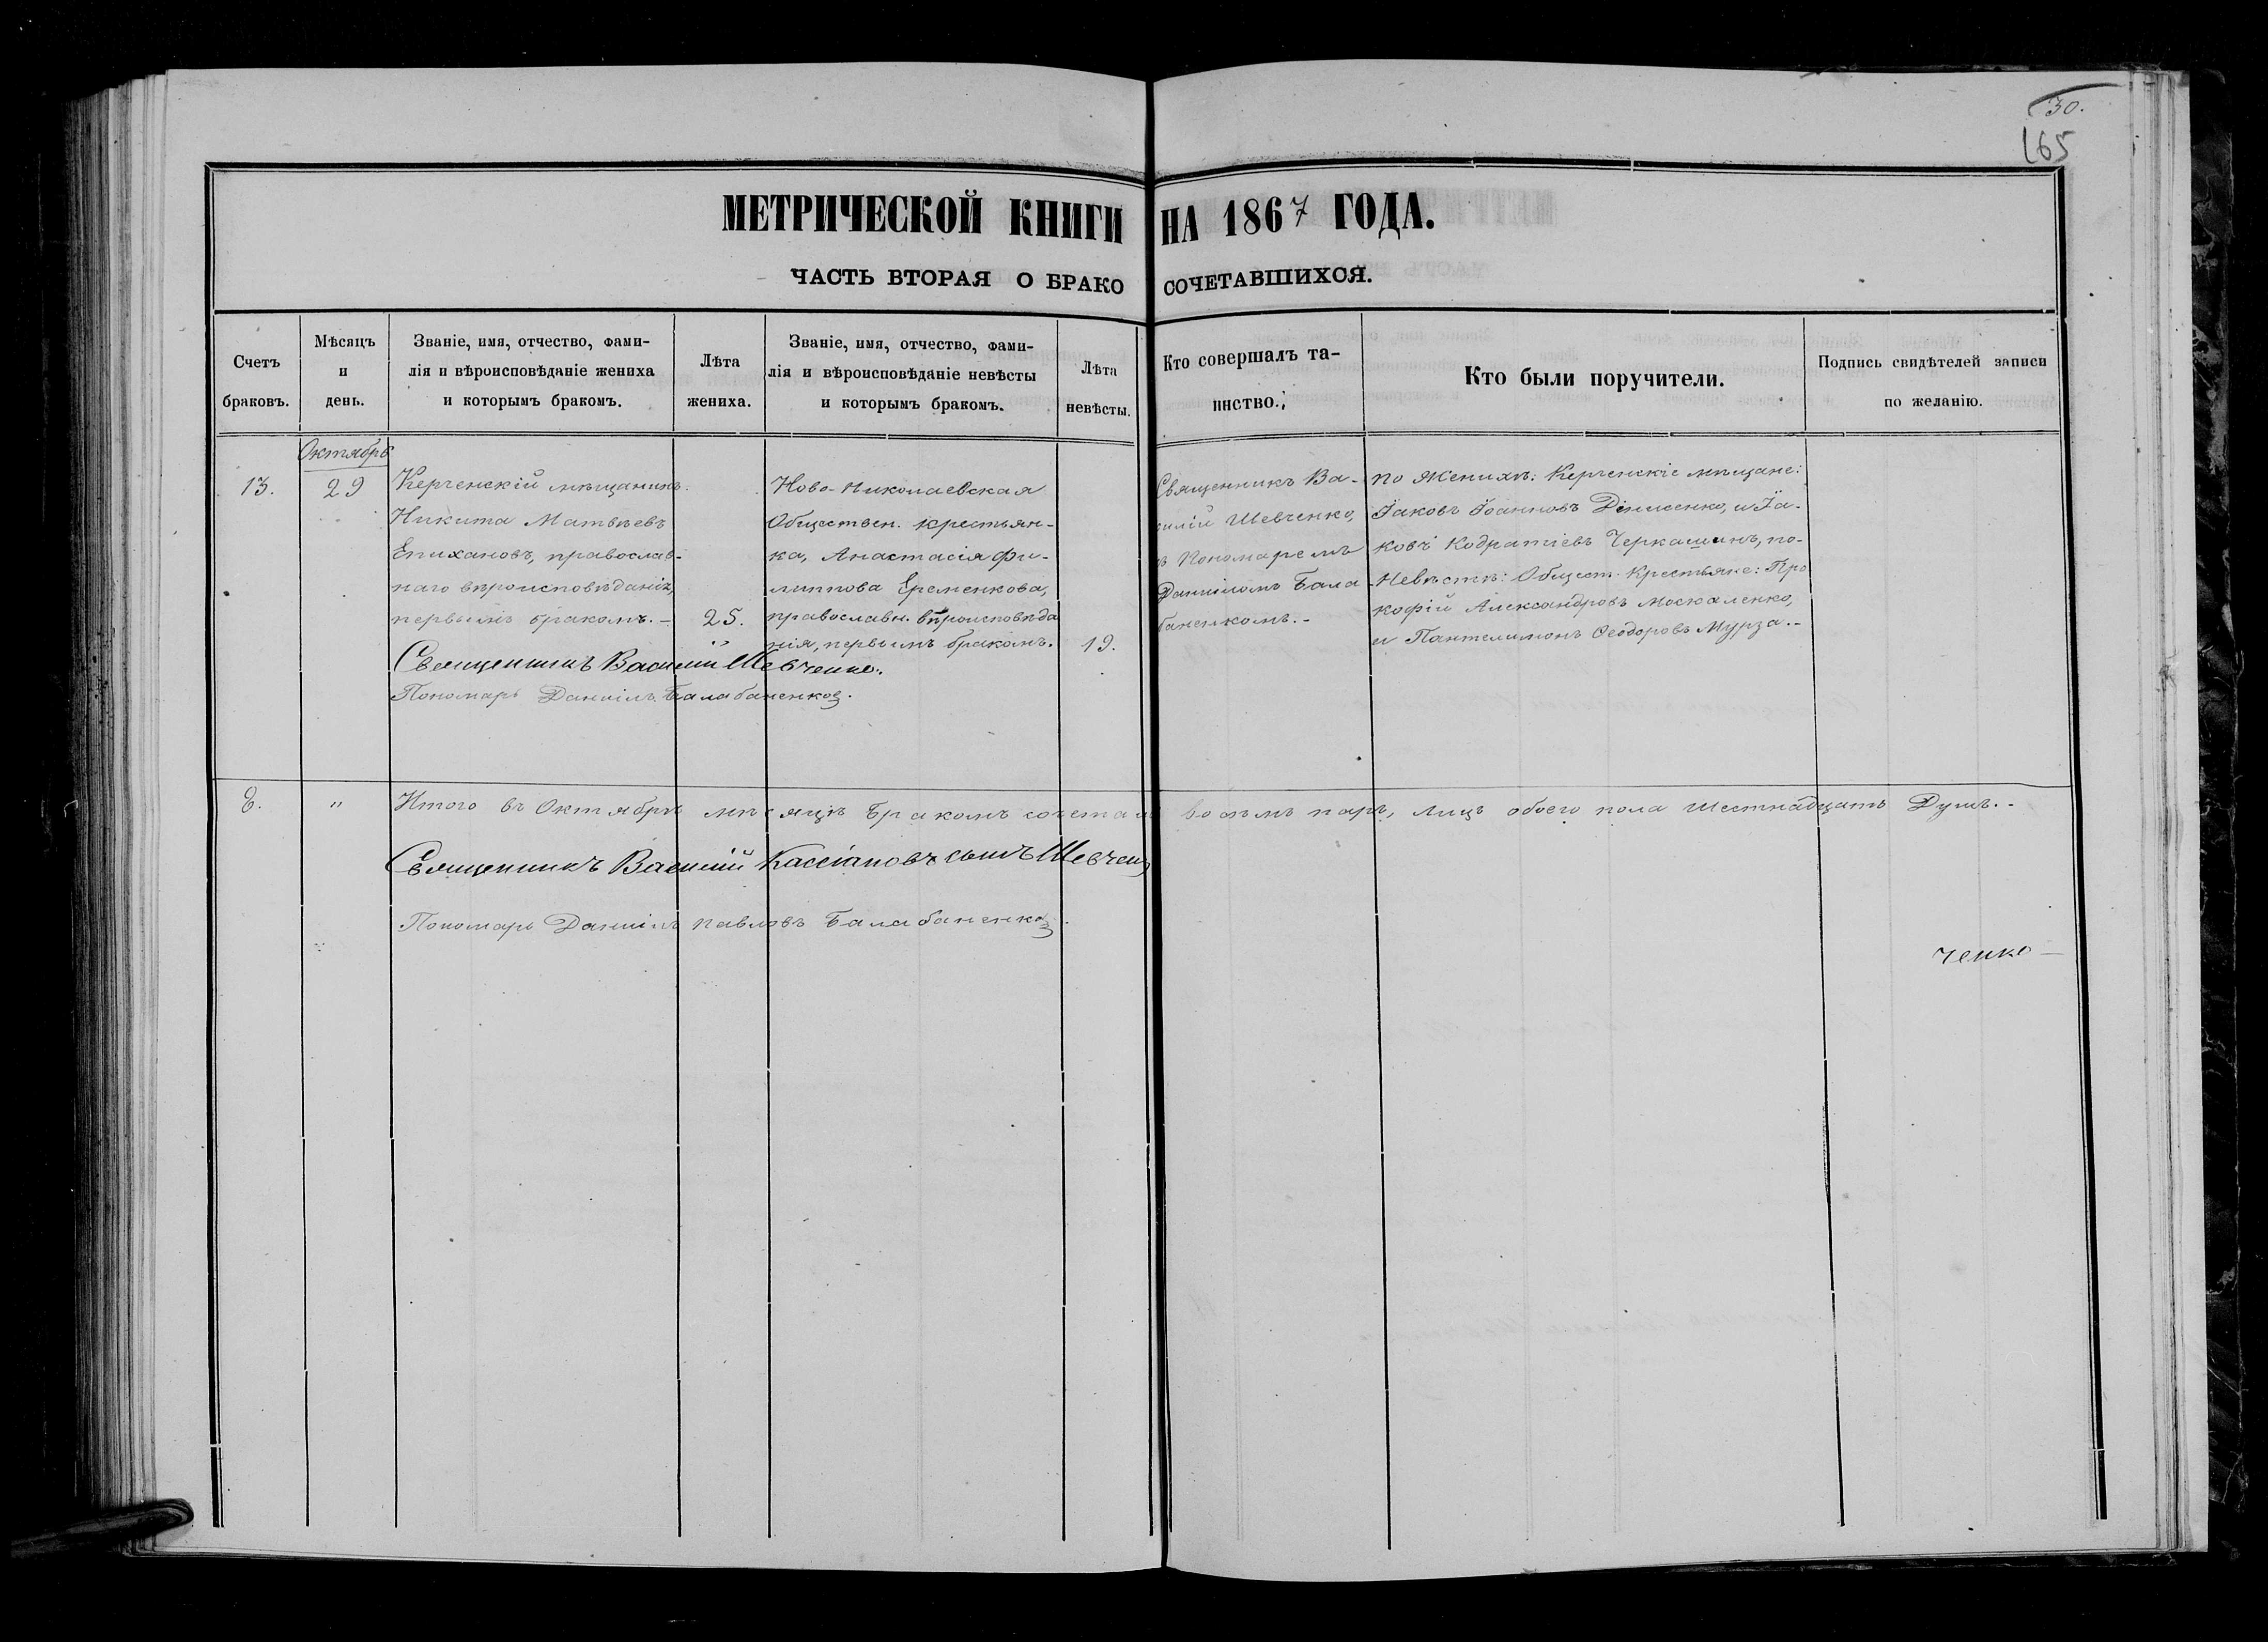 30.
165
МЕТРИЧЕСКОЙ КНИГИ НА 1867 ГОДА.
ЧАСТЬ ВТОРАЯ О БРАКОСОЧЕТАВШИХСЯ.
Счетъ браковъ.
Мѣсяцъ и день.
Званіе, имя, отчество, фами-
лія и вѣроисповѣданіе жениха
и которымъ бракомъ.
Лѣта жениха.
Званіе, имя, отчество, фами-
лія и вѣроисповѣданіе невѣсты
и которымъ бракомъ.
Лѣта невѣсты.
Кто совершалъ та-
инство.
Кто были поручители.
Подпись свидѣтелей записи
по желанію.
Октябрь
13.
29
Керченскій мѣщанинъ
Никита Матвѣевъ
Епихановъ, православ-
наго вѣроисповѣданія,
первымъ бракомъ.-
25.
Священникъ Василій Шевченко.
Пономарь Даніилъ Балабаненков.
Ново-Николаевская
Обществен. крестьян-
ка, Анастасія Фи-
липпова Еременкова,
православн. вѣроисповѣда
нія, первымъ бракомъ.
19.
Священникъ Ва-
силій Шевченко,
съ Пономаремъ
Даніиломъ Бала
баненкомъ.-
по Женихѣ: Керченскіе мѣщане:
Іаковъ Іоанновъ Денисенко, и Іа-
ковъ Кодратіевъ Черкашинъ, по-
Невѣстѣ: Общест. Крестьяне: Про
кофій Александровъ Москаленко,
и Пантелимонъ Ѳеодоровъ Мурза.-
8.
"
Итого въ Октябрѣ мѣсяцѣ бракомъ сочетано восемь паръ, лицъ обоего пола шестнадцать Душъ.-
Священникъ Василій Кассіановъ сынъ Шевчен
ченко
Пономарь Даніилъ Павловъ Балабаненков.